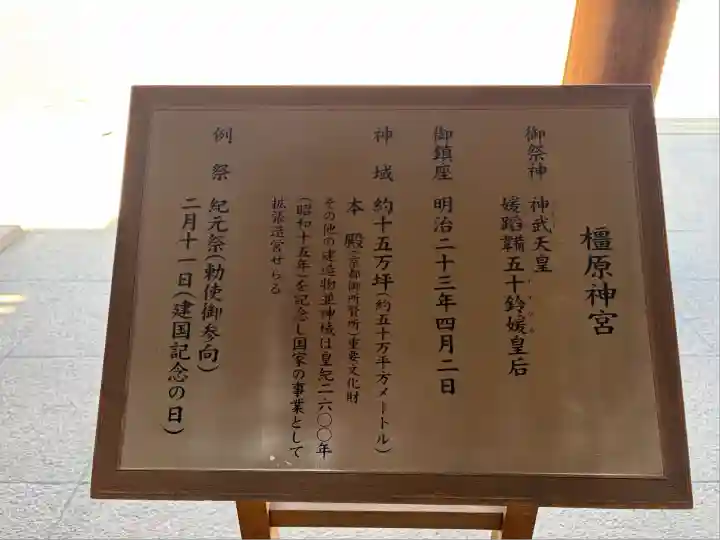 橿原神宮
御祭神 神武天皇
媛蹈韛五十鈴媛皇后
御鎮座 明治二十三年四月二日
神域 約十五万坪(約五十万平方メートル)
本殿(京都御所賢所)重要文化財
その他の建造物並神域は皇紀二六〇〇年
(昭和十五年)を記念し国家の事業として
拡張造営せらる
例祭 紀元祭(勅使御参向)
二月十一日(建国記念の日)